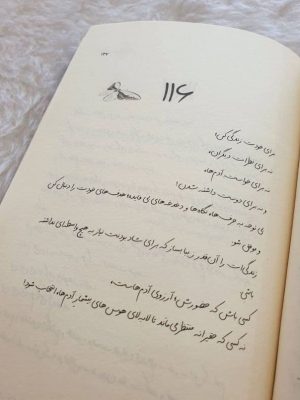 ۱۳۲
۱۱۶
برای خودت زندگی کن!
نه برای نظرات دیگران،
نه برای خواست آدم‌ها،
و نه برای دوست داشته شدن!
بی توجه به حرف‌ها، نگاه‌ها و دغدغه‌های بی فایده هدف‌های خودت را دنبال کن
و موفق شو
زندگی‌ات را آن‌قدر زیبا بساز که برای شاد بودنت نیاز به هیچ واسطه‌ای نداشته
باشی
کسی باش که حضورش، آرزوی آدم‌هاست،
نه کسی که حقیرانه منتظر می‌ماند تا لابه‌لای هوس های بیشمار آدم‌ها، انتخاب شود!